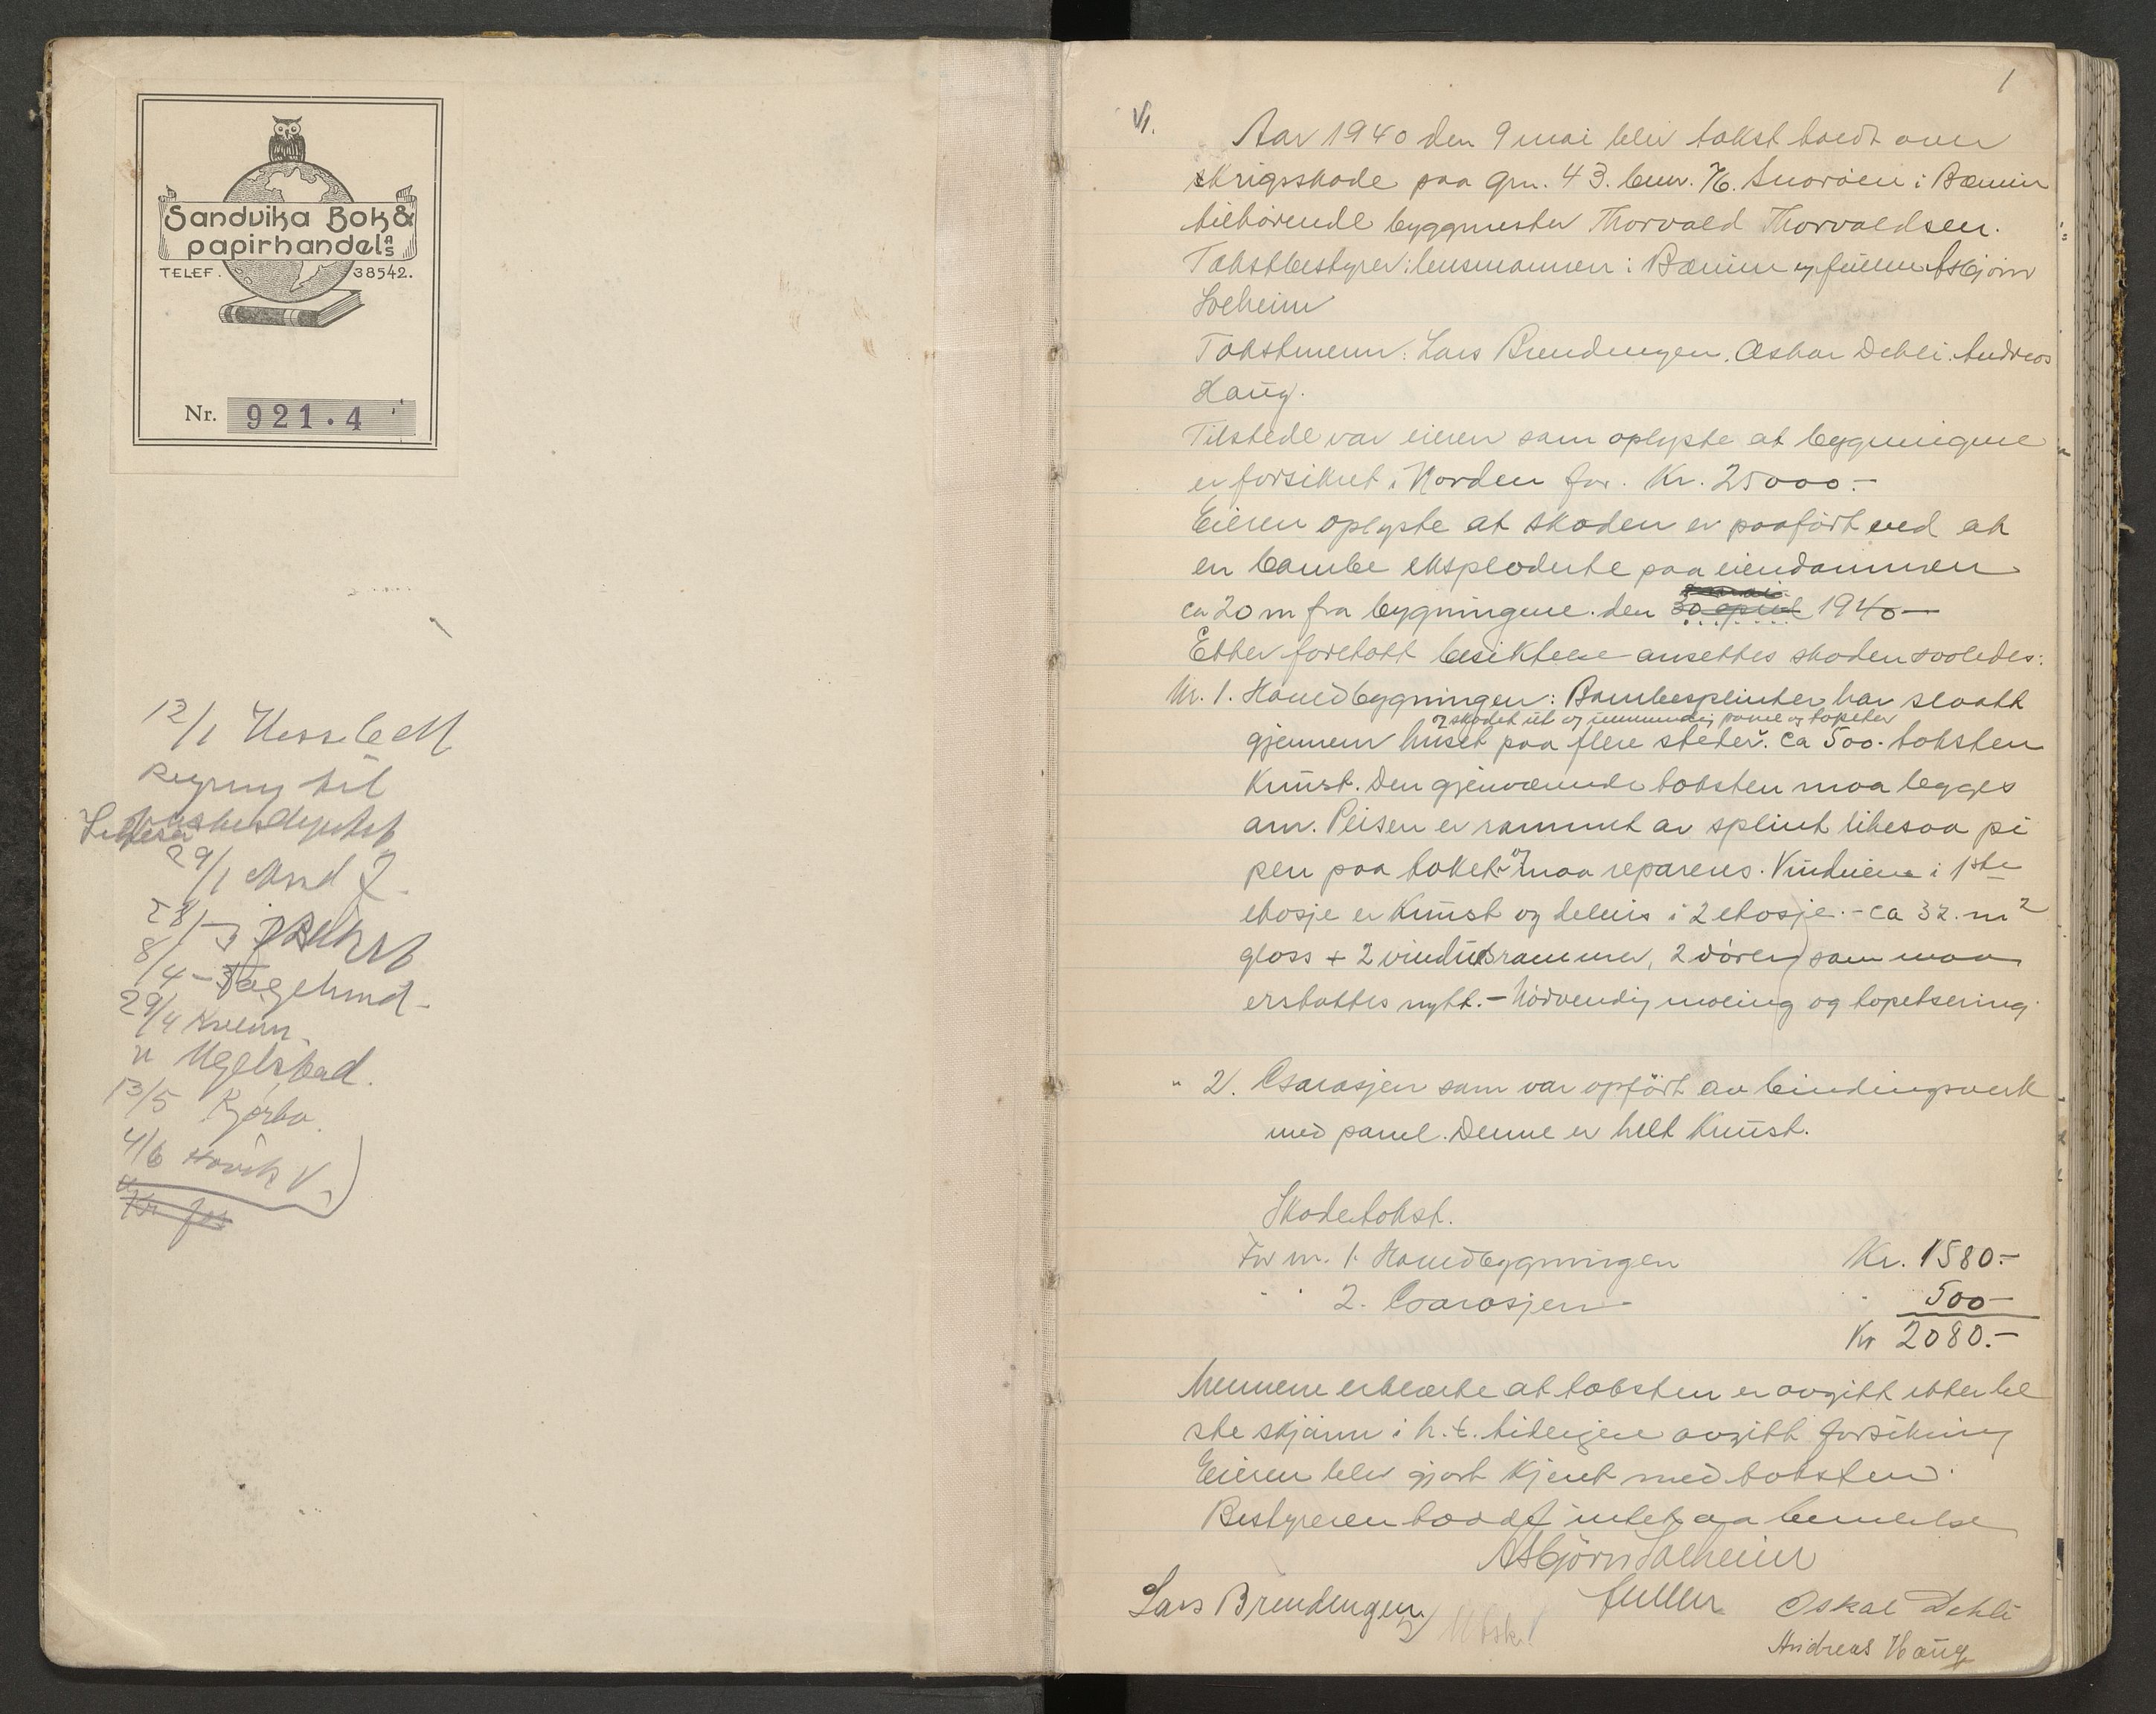 Sandvika Bok &
papirhandel A/S
TELEF. 38542.
Nr. 921.4
12/1
til
29/1
28/
8/4 -
29/4
" Ugelstad.
13/5 Kjørbo.
4/6 Høvik V.
1
V1.
Aar 1940 den 9 mai blev takst holdt over
Krigsskade paa gnr. 43. bnr. 76. Snarøen i Bærum
tilhørende byggmester Thorvald Thorvaldsen.
Takstbestyrer: lensmannen i Bærum v/fullm Asbjørn
Solheim
Takstmenn: Lars Brendengen. Oskar Dehli. Andreas
Haug.
Tilstede var eieren som oplyste at bygningene
er forsikret i Norden for. Kr. 25000.-
Eieren oplyste at skaden er paaført ved at
en bombe eksploderte paa eiendommen
ca 20 m fra bygningene. den 30 april 1940 -
Etter foretatt besiktelse ansettes skaden saaledes:
Nr. 1. Hovedbygningen: Bombesplinter har slaatt
og skadet ut og innvendig panel og tapeter
gjennem huset paa flere steder. ca 500. taksten
Knust. Den gjenværende taksten maa legges
om. Peisen er rammet av splint likesaa pi
pen paa taket og maa repareres. Vinduene i 1ste
etasje er Knust og delvis i 2 etasje. - ca 32. m2
glass + 2 vindusrammer, 2 dører som maa
erstattes nytt. - Nødvendig maling og tapetsering.
" 2. Garasjen som var opført av bindingsverk
med panel. Denne er helt Knust.
Skadetakst.
For nr. 1. Hovedbygningen Kr. 1580.-
" " 2. Garasjen " 500-
Kr 2080.-
Mennene erklærte at taksten er avgitt etter be
ste skjønn i h.t. tidligere avgitt forsikring
Eieren blev gjort Kjent med taksten.
Bestyreren hadde intet aa bemerke
Asbjørn Solheim
fullm.
Lars Brendengen
Oskar Dehli
Andreas Haug
Utsk.